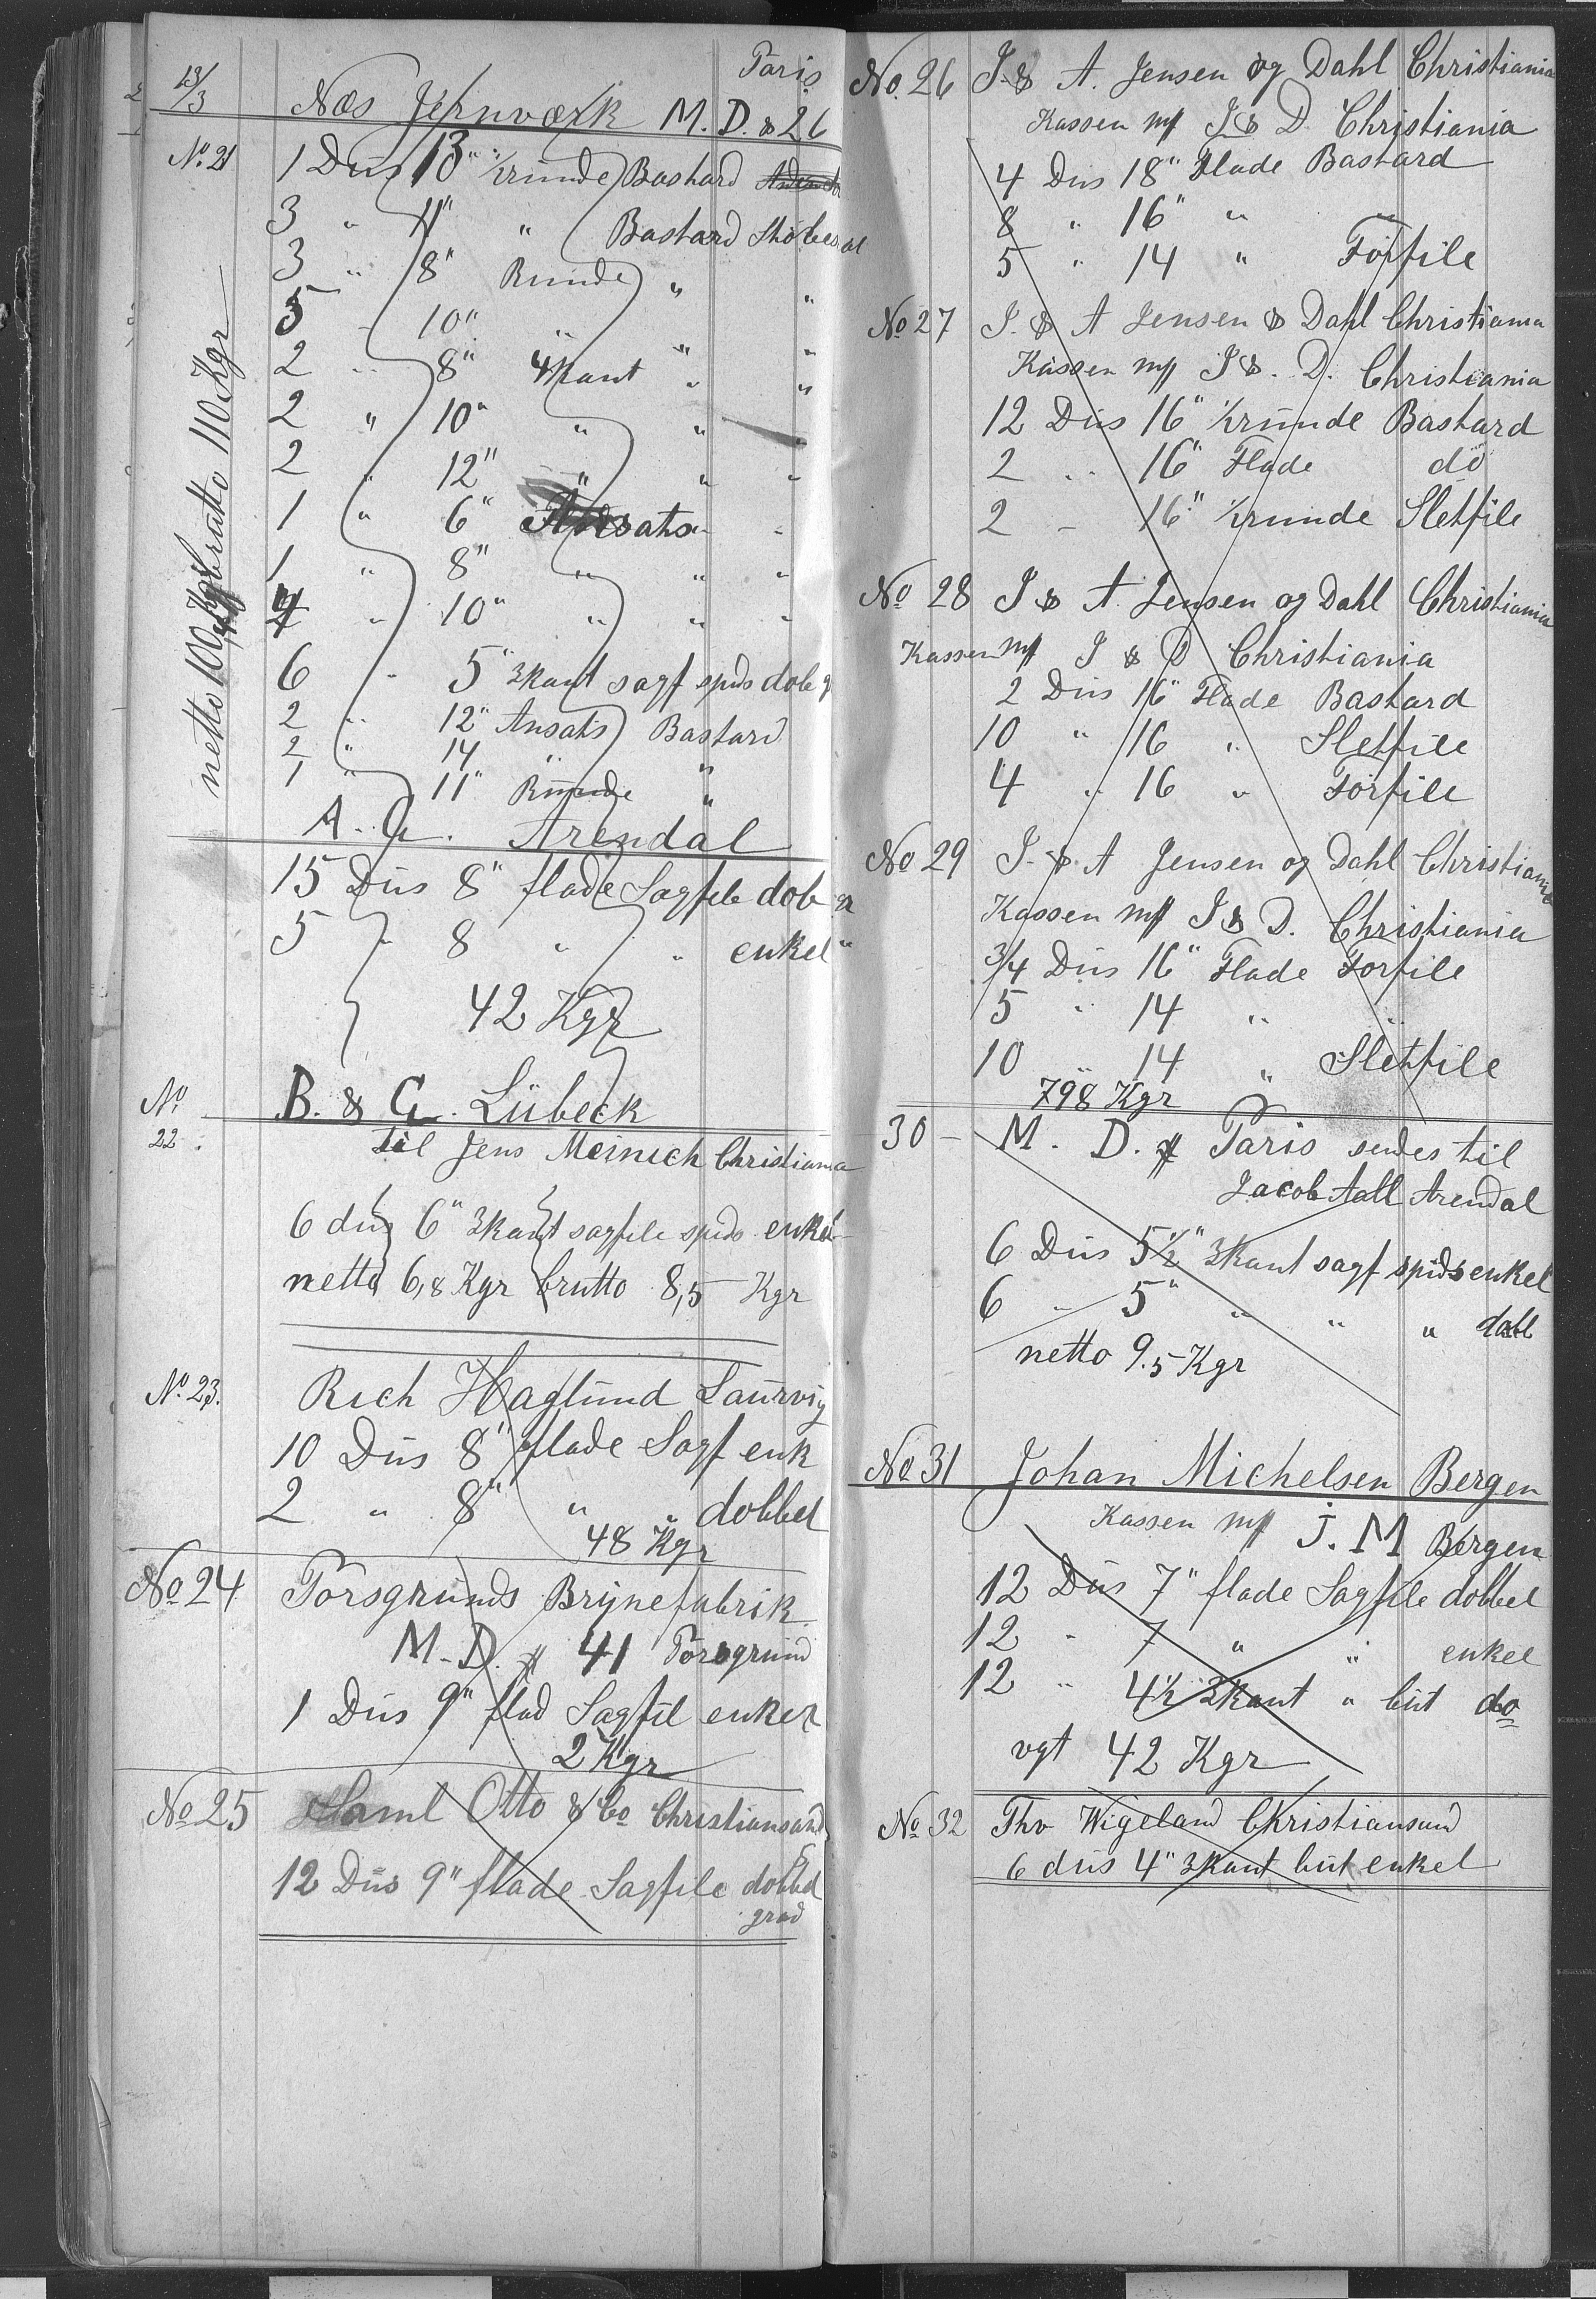 Paris
13/3 Næs Jernværk M. D. & 26
No. 21 1 Dus 13" ½runde Bastard
3 " 11" " Bastard Støbestaal
3 " 8" Runde " "
5 - 10" " " "
2 " 8" 4kant " "
2 " 10" " " "
2 " 12" " " "
1 " 6" Ansats " "
1 " 8" " " "
4 " 10" " " "
6 " 5" 3kant sagf spids dob g
2 " 12" Ansats Bastard
2 " 14 " "
1 " 11" Runde "
netto 100 Kg brutto 110 Kgr
A. G. Arendal
15 Dus 8" flade Sagfile dob gr
5 " 8 " " enkel "
42 Kgr
No. 22. B. & G. Lübeck
til Jens Meinich Christiania
6 dus 6" 3kant sagfile spids enkel
netto 6,8 Kgr brutto 8,5 Kgr
No. 23. Rich Haglund Laurvig
10 Dus 8" flade Sagf enk
2 " 8" " " dobbel
48 Kgr
No 24 Porsgrunds Brynefabrik
M. D. # 41 Porsgrund
1 Dus 9" flad Sagfil enkel
2 Kgr
No 25 Saml Otto & Co Christiansand S
12 Dus 9" flade Sagfile dobbel
grad
No. 26 J. & A. Jensen og Dahl Christiania
Kassen mf J & D Christiania
4 Dus 18" Flade Bastard
8 " 16" " "
5 " 14 " Forfile
No 27 J. & A Jensen & Dahl Christiania
Kassen mf J &. D. Christiania
12 Dus 16" ½runde Bastard
2 " 16" Flade do
2 - 16" ½runde Sletfile
No 28 J & A. Jensen og Dahl Christiania
Kassen mf J & D Christiania
2 Dus 16" Flade Bastard
10 " 16 " Sletfile
4 " 16 " Forfile
No 29 J. & A Jensen og Dahl Christiania
Kassen mf J & D. Christiania
3/4 Dus 16" Flade Forfile
5 " 14 " "
10 " 14 " Sletfile
798 Kgr
30 - M. D. # Paris sendes til
Jacob Aall Arendal
6 Dus 5½" 3kant sagf spids enkel
6 " 5" " " " dobl
netto 9.5 Kgr
No 31 Johan Michelsen Bergen
Kassen mf J. M Bergen
12 Dus 7" flade Sagfile dobbel
12 - 7 " " enkel
12 " 4½ 3kant " but do
vgt 42 Kgr
No 32 Thv Wigeland Christiansund
6 dus 4" 3kant but enkel